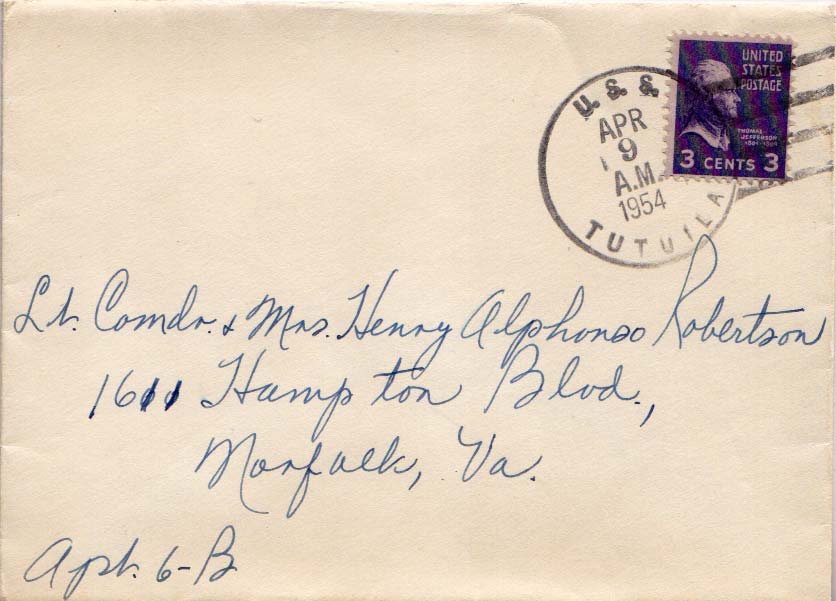 U. S. S.
APR
9
A.M.
1954
TUTUILA
UNITED
STATES
POSTAGE
THOMAS
JEFFERSON
1801-1809
3 CENTS 3
Lt. Comdr. & Mrs. Henry Alphonso Robertson
1611 Hampton Blvd.,
Norfolk, Va.
Apt. 6-B